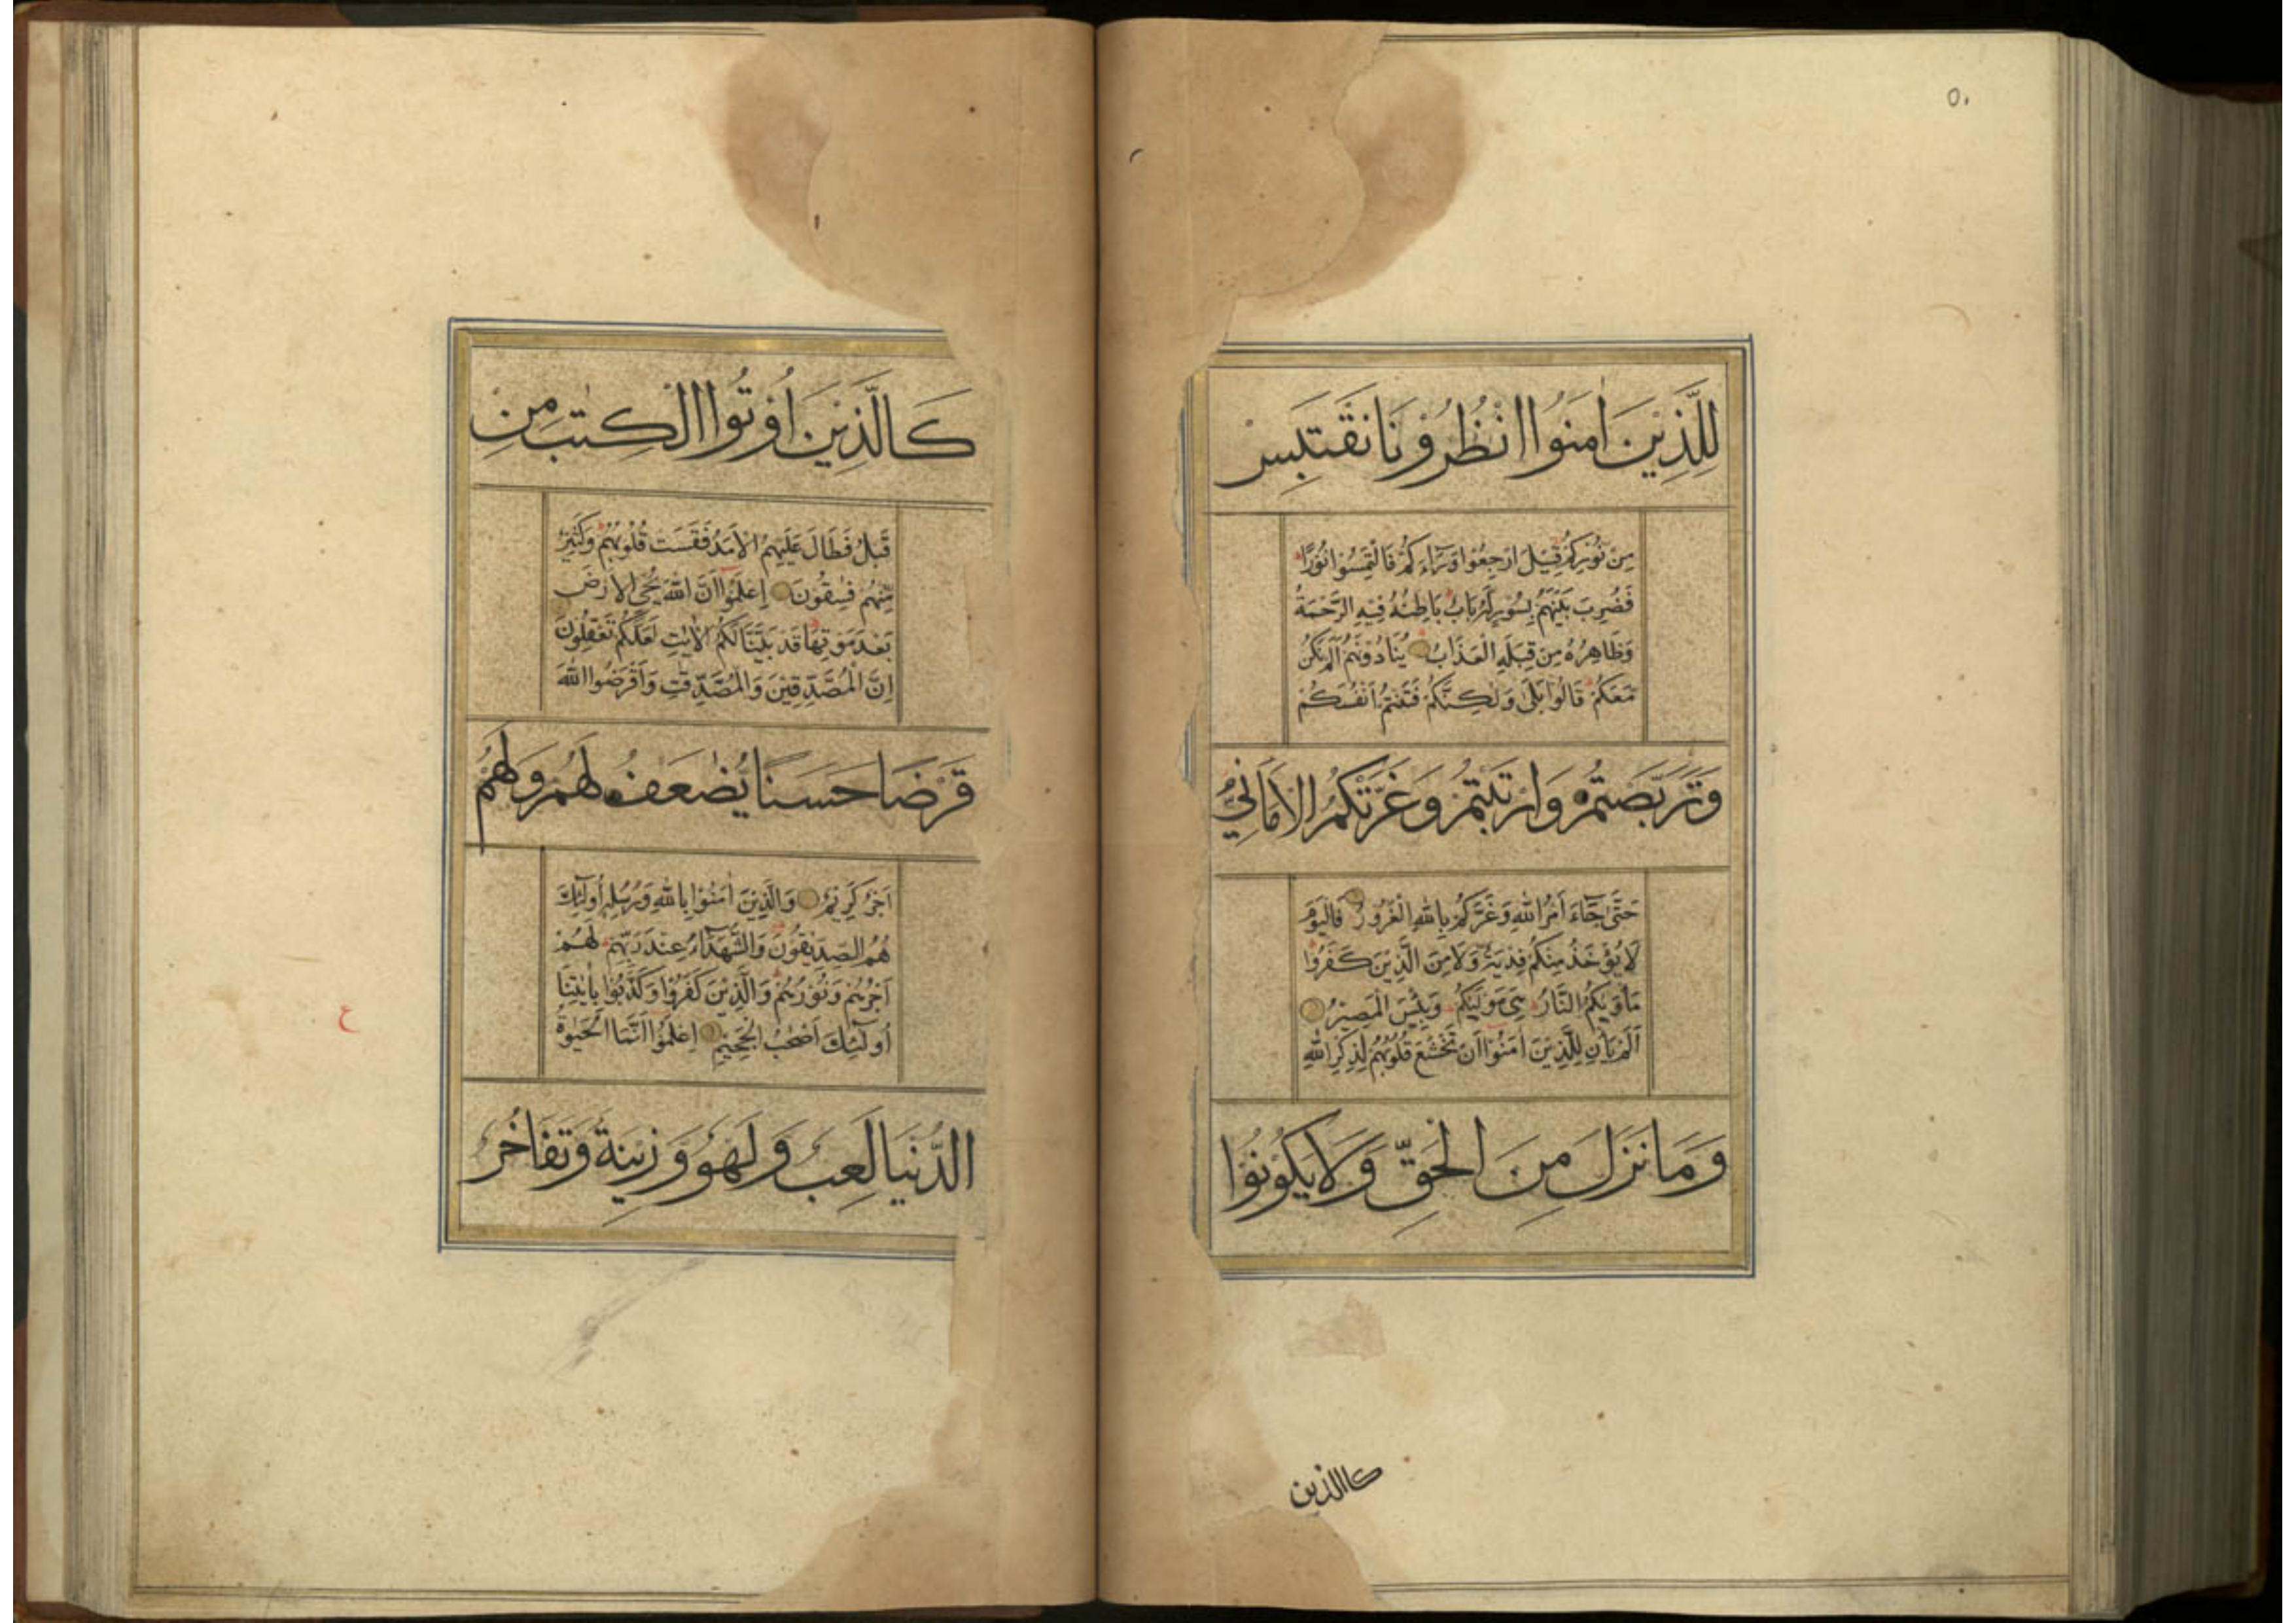 ٥٠
لِلَّذِيْنَ اٰمَنُوا انْظُرُوْنَا نَقْتَبِسْ
مِنْ نُوْرِكُمْ قِيْلَ ارْجِعُوْا وَرَآءَكُمْ فَالْتَمِسُوْا نُوْرًا
فَضُرِبَ بَيْنَهُمْ بِسُوْرٍ لَهُ بَابٌ بَاطِنُهُ فِيْهِ الرَّحْمَةُ
وَظَاهِرُهُ مِنْ قِبَلِهِ الْعَذَابُ يُنَادُوْنَهُمْ اَلَمْ نَكُنْ
مَعَكُمْ قَالُوْا بَلٰى وَلٰكِنَّكُمْ فَتَنْتُمْ اَنْفُسَكُمْ
وَتَرَبَّصْتُمْ وَارْتَبْتُمْ وَغَرَّتْكُمُ الْاَمَانِيُّ
حَتّٰى جَآءَ اَمْرُ اللّٰهِ وَغَرَّكُمْ بِاللّٰهِ الْغَرُوْرُ فَالْيَوْمَ
لَا يُؤْخَذُ مِنْكُمْ فِدْيَةٌ وَلَا مِنَ الَّذِيْنَ كَفَرُوْا
مَاْوٰيكُمُ النَّارُ هِىَ مَوْلٰيكُمْ وَبِئْسَ الْمَصِيْرُ
اَلَمْ يَاْنِ لِلَّذِيْنَ اٰمَنُوْا اَنْ تَخْشَعَ قُلُوْبُهُمْ لِذِكْرِ اللّٰهِ
وَمَا نَزَلَ مِنَ الْحَقِّ وَلَا يَكُوْنُوْا
كاالذين
كَالَّذِيْنَ اُوْتُوا الْكِتٰبَ مِنْ
قَبْلُ فَطَالَ عَلَيْهِمُ الْاَمَدُ فَقَسَتْ قُلُوْبُهُمْ وَكَثِيْرٌ
مِنْهُمْ فٰسِقُوْنَ اِعْلَمُوْا اَنَّ اللّٰهَ يُحْىِ الْاَرْضَ
بَعْدَ مَوْتِهَا قَدْ بَيَّنَّا لَكُمُ الْاٰيٰتِ لَعَلَّكُمْ تَعْقِلُوْنَ
اِنَّ الْمُصَّدِّقِيْنَ وَالْمُصَّدِّقٰتِ وَاَقْرَضُوا اللّٰهَ
قَرْضًا حَسَنًا يُضٰعَفُ لَهُمْ وَلَهُمْ
اَجْرٌ كَرِيْمٌ وَالَّذِيْنَ اٰمَنُوْا بِاللّٰهِ وَرُسُلِهِ اُولٰٓئِكَ
هُمُ الصِّدِّيْقُوْنَ وَالشُّهَدَآءُ عِنْدَ رَبِّهِمْ لَهُمْ
اَجْرُهُمْ وَنُوْرُهُمْ وَالَّذِيْنَ كَفَرُوْا وَكَذَّبُوْا بِاٰيٰتِنَا
اُولٰٓئِكَ اَصْحٰبُ الْجَحِيْمِ اِعْلَمُوْا اَنَّمَا الْحَيٰوةُ
الدُّنْيَا لَعِبٌ وَلَهْوٌ وَزِيْنَةٌ وَتَفَاخُرٌ
ع